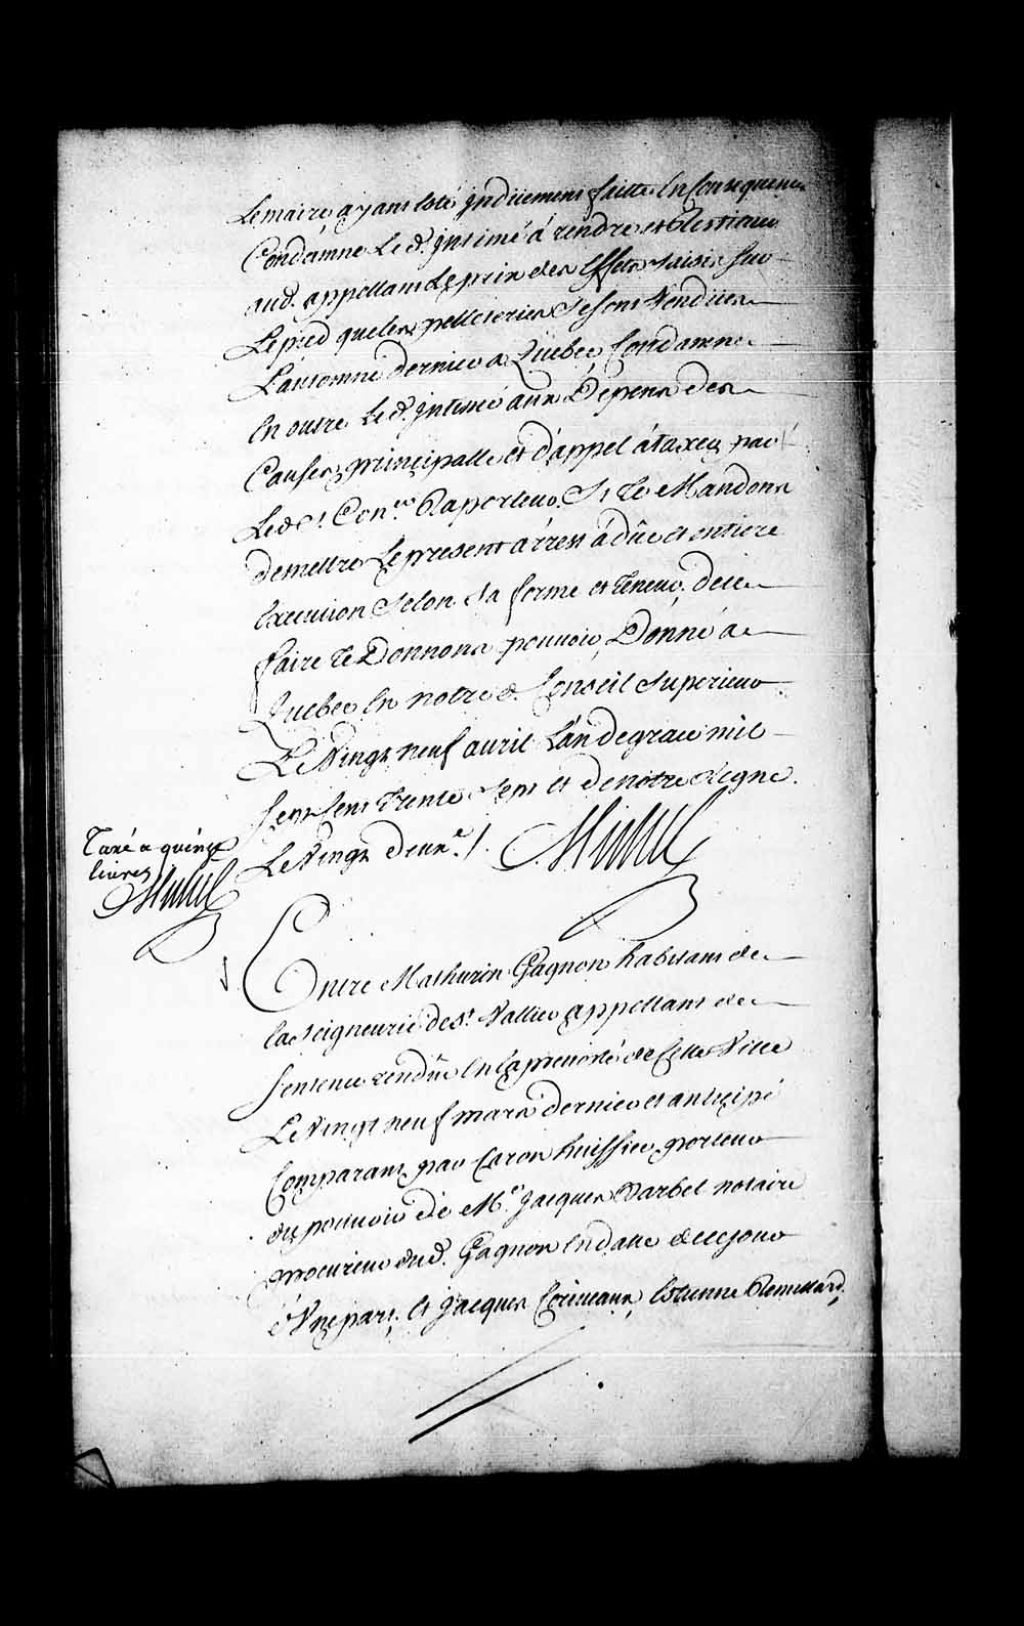 Lemaire ayant esté induement faitte En Consequence
Condamne Le d. intimé à rendre et Restituer
aud. appellant Le prix des Effets saisis sur
Le pied que les pelleteries se sont Vendües
L'automne dernier a Quebec Condamne
En outre Le d. intimé aux Dépens des
Causes principalle et d'appel à taxer par
Le d. s.r Con.er Raporteur, Si Te Mandons
de mettre Le present arrest à düe et entiere
Execution Selon sa forme et teneur, de ce
faire Te Donnons pouvoir, Donné à
Quebec En notre d. Conseil Superieur
Le Vingt neuf avril L'an de grace mil
sept Cent Trente Sept et de notre Regne
Le Vingt deux.e /.
Taxé a quinze
livres
Entre Mathurin Gagnon habitant de
la Seigneurie de S.t Vallier appellant de
Sentence rendüe En la prevosté de Cette Ville
Le Vingt neuf mars dernier et anticipé
Comparant par Caron huissier porteur
du pouvoir de M.e Jacques Barbel notaire
procureur dud. Gagnon En datte de ce jour
d'Une part, Et Jacques Corriveaux, Estienne Remillard,